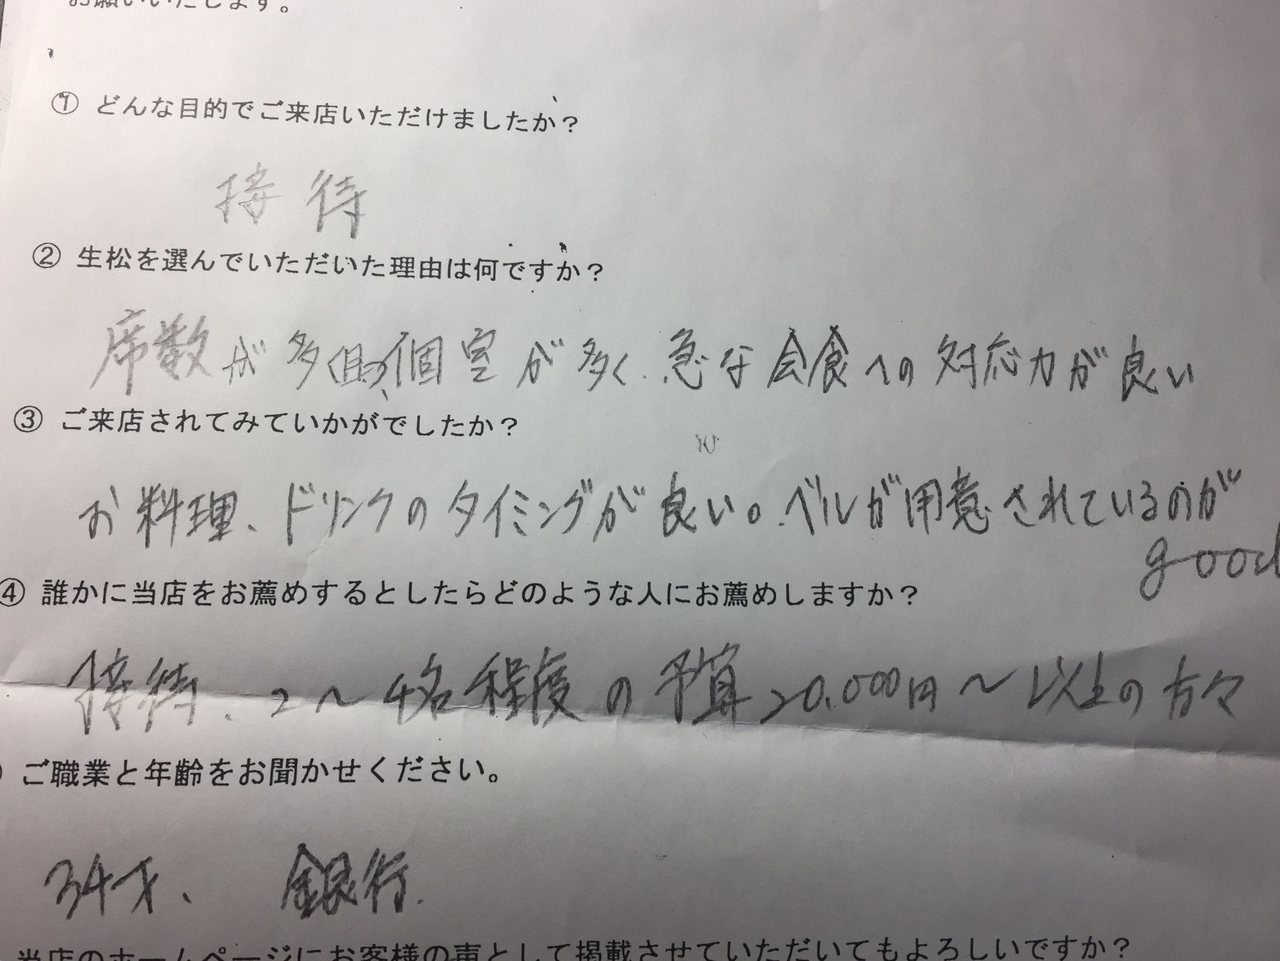 お願いいたします。
① どんな目的でご来店いただけましたか？
接待
② 生松を選んでいただいた理由は何ですか？
席数が多く個室が多く、急な会食への対応力が良い
③ ご来店されてみていかがでしたか？
お料理、ドリンクのタイミングが良い。ベルが用意されているのが
good
④ 誰かに当店をお薦めするとしたらどのような人にお薦めしますか？
接待、2～4名程度の予算20,000円～以上の方々
ご職業と年齢をお聞かせください。
34才、銀行
当店のホームページにお客様の声として掲載させていただいてもよろしいですか？